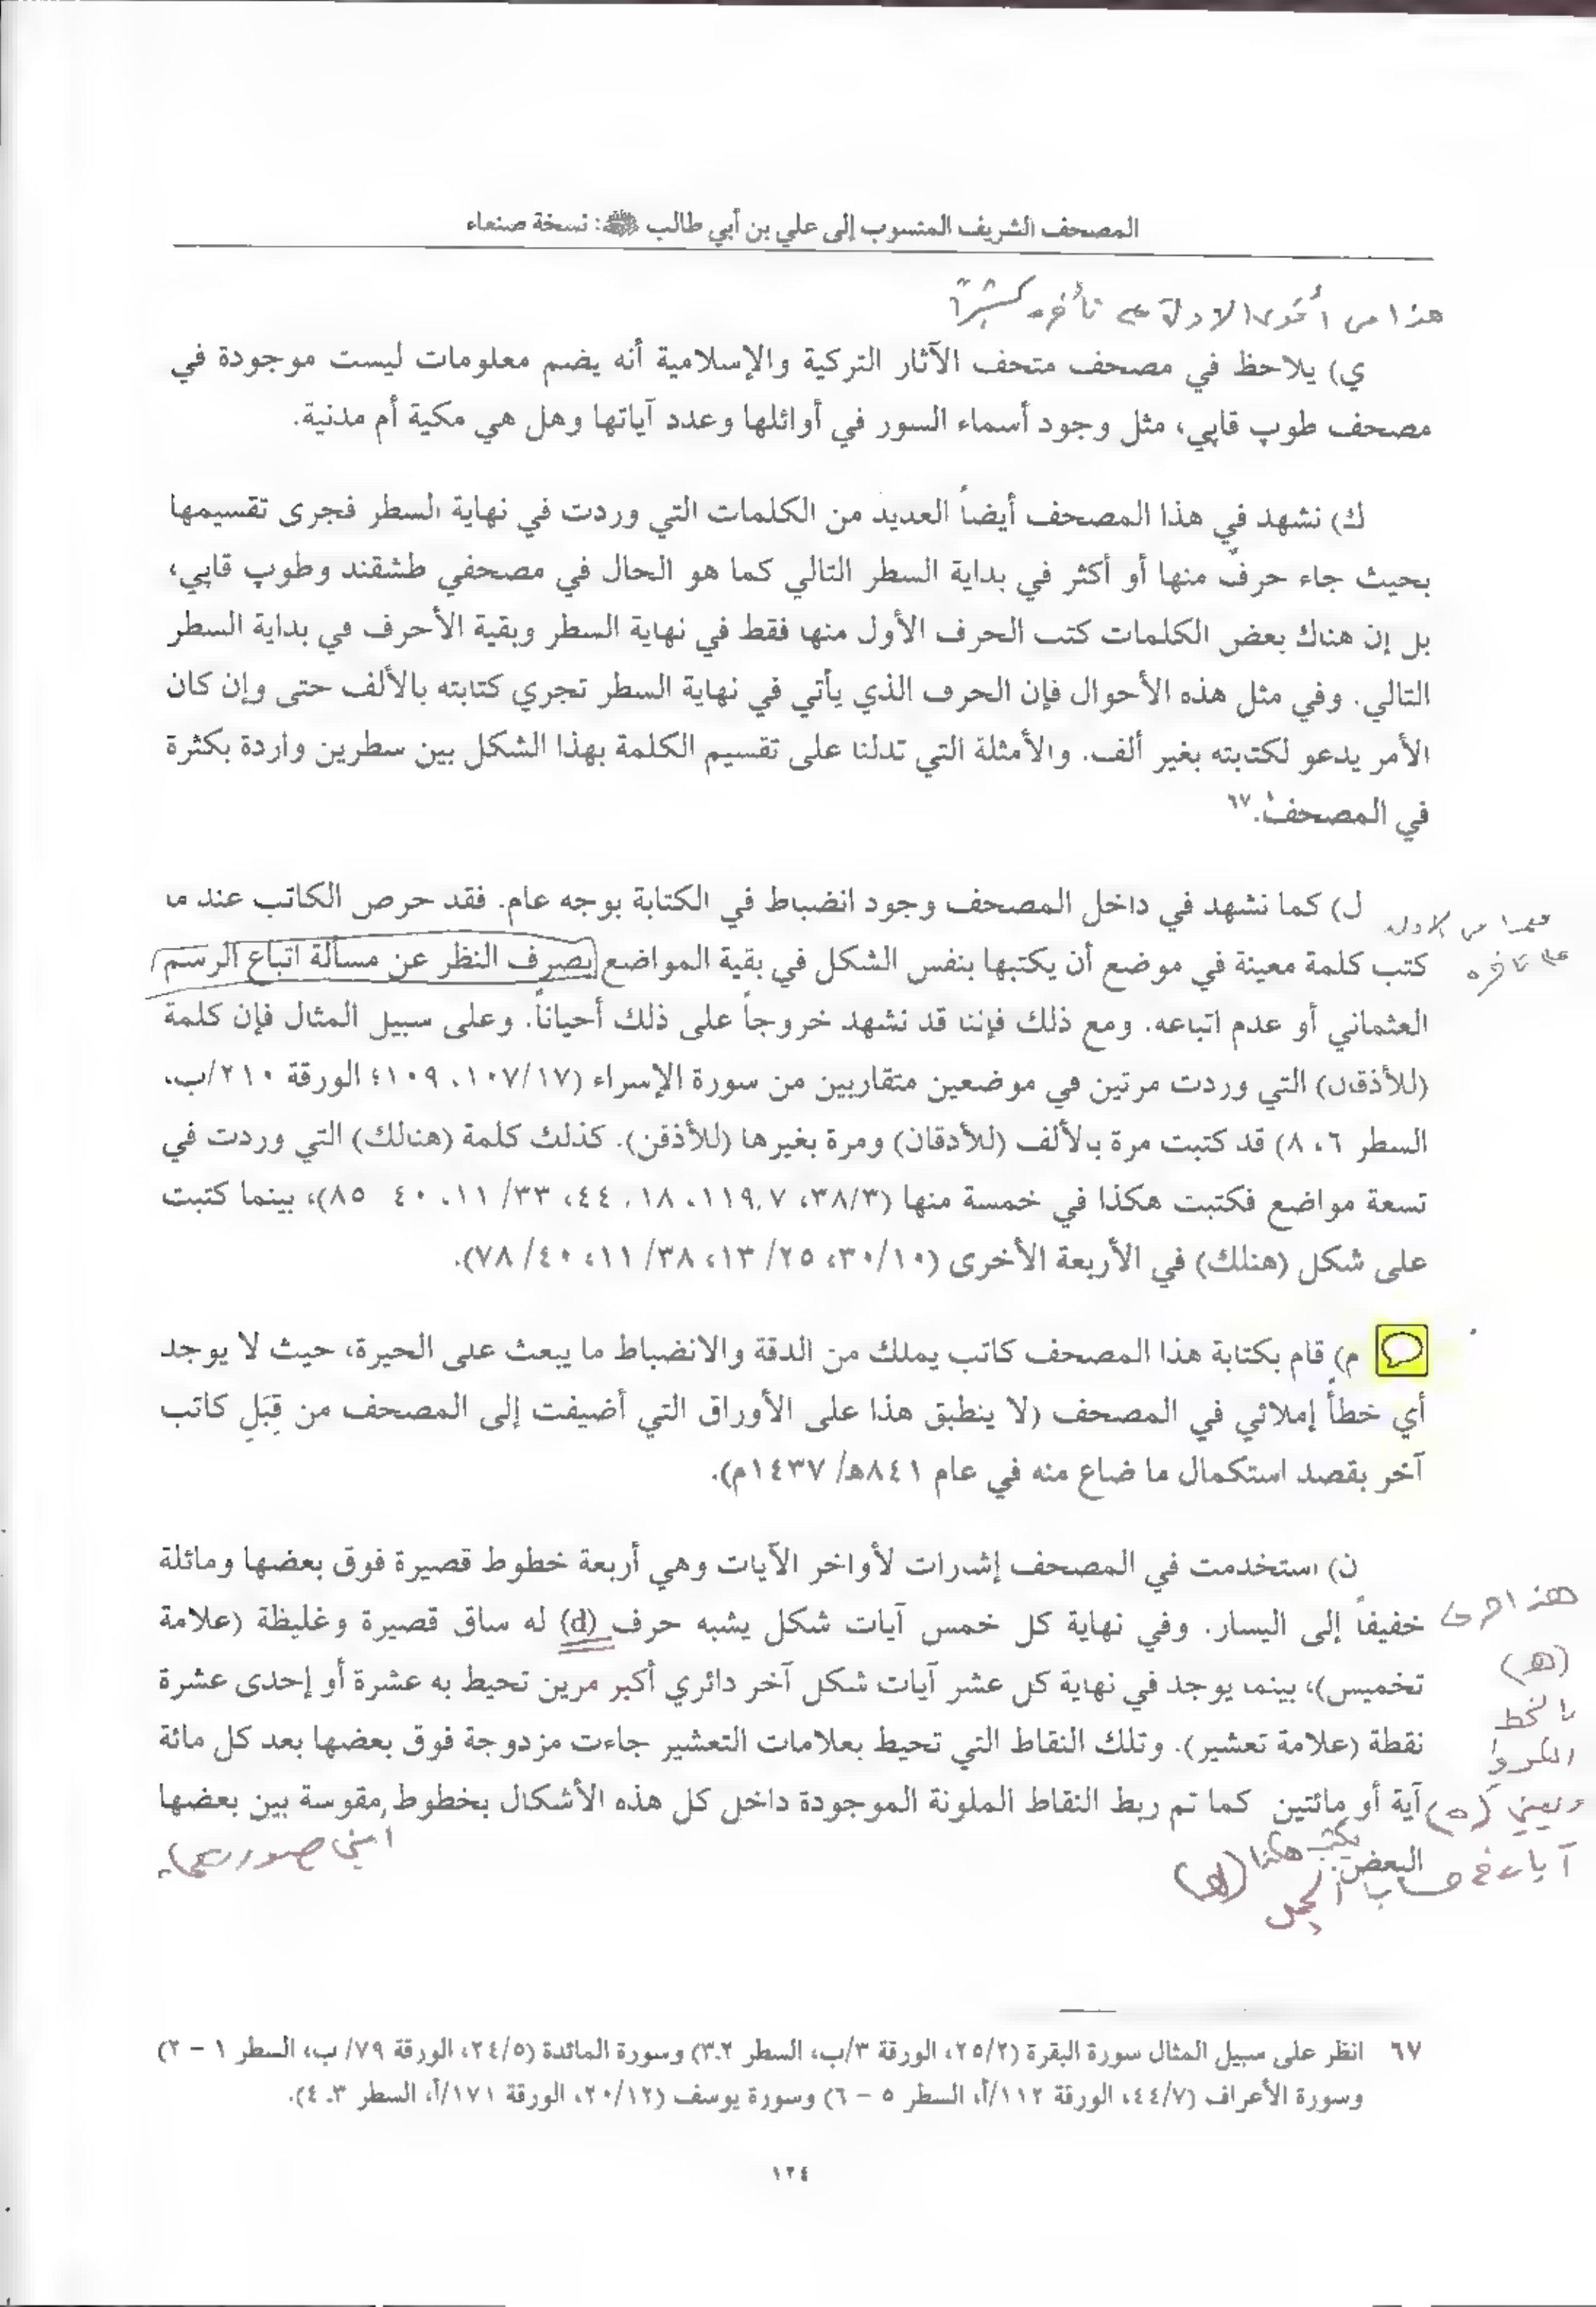 المصحف الشريف المنسوب إلى علي بن أبي طالب ﷺ: نسخة صنعاء
هذا من أقوى الادلة على تأخره كثيرًا
ي) يلاحظ في مصحف متحف الآثار التركية والإسلامية أنه يضم معلومات ليست موجودة في
مصحف طوپ قاپي، مثل وجود أسماء السور في أوائلها وعدد آياتها وهل هي مكية أم مدنية.
ك) نشهد في هذا المصحف أيضاً العديد من الكلمات التي وردت في نهاية السطر فجرى تقسيمها
بحيث جاء حرفٌ منها أو أكثر في بداية السطر التالي كما هو الحال في مصحفي طشقند وطوپ قاپي،
بل إن هناك بعض الكلمات كتب الحرف الأول منها فقط في نهاية السطر وبقية الأحرف في بداية السطر
التالي. وفي مثل هذه الأحوال فإن الحرف الذي يأتي في نهاية السطر تجري كتابته بالألف حتى وإن كان
الأمر يدعو لكتابته بغير ألف. والأمثلة التي تدلنا على تقسيم الكلمة بهذا الشكل بين سطرين واردة بكثرة
في المصحف.٦٧
ل) كما نشهد في داخل المصحف وجود انضباط في الكتابة بوجه عام. فقد حرص الكاتب عند ما
كتب كلمة معينة في موضع أن يكتبها بنفس الشكل في بقية المواضع بصرف النظر عن مسألة اتباع الرسم
العثماني أو عدم اتباعه. ومع ذلك فإننا قد نشهد خروجاً على ذلك أحياناً. وعلى سبيل المثال فإن كلمة
(للأذقان) التي وردت مرتين في موضعين متقاربين من سورة الإسراء (١٠٧/١٧، ١٠٩؛ الورقة ٢١٠/ب،
السطر ٦، ٨) قد كتبت مرة بالألف (للأذقان) ومرة بغيرها (للأذقن). كذلك كلمة (هنالك) التي وردت في
تسعة مواضع فكتبت هكذا في خمسة منها (٣٨/٣، ١١٩.٧، ١٨، ٤٤، ٣٣/ ١١، ٤٠ ٨٥)، بينما كتبت
على شكل (هنلك) في الأربعة الأخرى (٣٠/١٠، ٢٥/ ١٣، ٣٨/ ١١، ٤٠/ ٧٨).
من الادلة
على تأخره
م) قام بكتابة هذا المصحف كاتب يملك من الدقة والانضباط ما يبعث على الحيرة، حيث لا يوجد
أي خطأٍ إملائي في المصحف (لا ينطبق هذا على الأوراق التي أضيفت إلى المصحف من قِبَلِ كاتب
آخر بقصد استكمال ما ضاع منه في عام ٨٤١هـ/ ١٤٣٧م).
ن) استخدمت في المصحف إشارات لأواخر الآيات وهي أربعة خطوط قصيرة فوق بعضها ومائلة
خفيفاً إلى اليسار. وفي نهاية كل خمس آيات شكل يشبه حرف (d) له ساق قصيرة وغليظة (علامة
تخميس)، بينما يوجد في نهاية كل عشر آيات شكل آخر دائري أكبر مرين تحيط به عشرة أو إحدى عشرة
نقطة (علامة تعشير). وتلك النقاط التي تحيط بعلامات التعشير جاءت مزدوجة فوق بعضها بعد كل مائة
آية أو مائتين كما تم ربط النقاط الملونة الموجودة داخل كل هذه الأشكال بخطوط مقوسة بين بعضها
البعض.
هذا حرف
(هـ)
بالخط
الكوفي
ويعني (٥)
آيات في حساب الجمل
يكتب هكذا
٦٧ انظر على سبيل المثال سورة البقرة (٢٥/٢، الورقة ٣/ب، السطر ٣.٢) وسورة المائدة (٢٤/٥، الورقة ٧٩/ ب، السطر ١ – ٢)
وسورة الأعراف (٤٤/٧، الورقة ١١٢/أ، السطر ٥ – ٦) وسورة يوسف (٢٠/١٢، الورقة ١٧١/أ، السطر ٣ـ ٤).
١٢٤